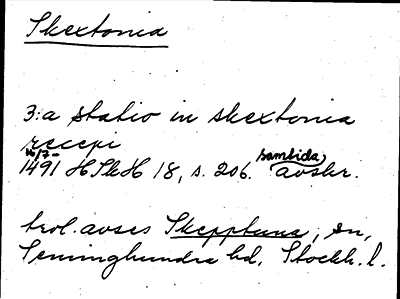 Skextonia
3:a statio in skextonia
recepi
16/7-
1491 HSkH 18, s. 206. samtida avskr.
trol. avses Skepptuna, sn,
Seminghundra hd, Stockh. l.